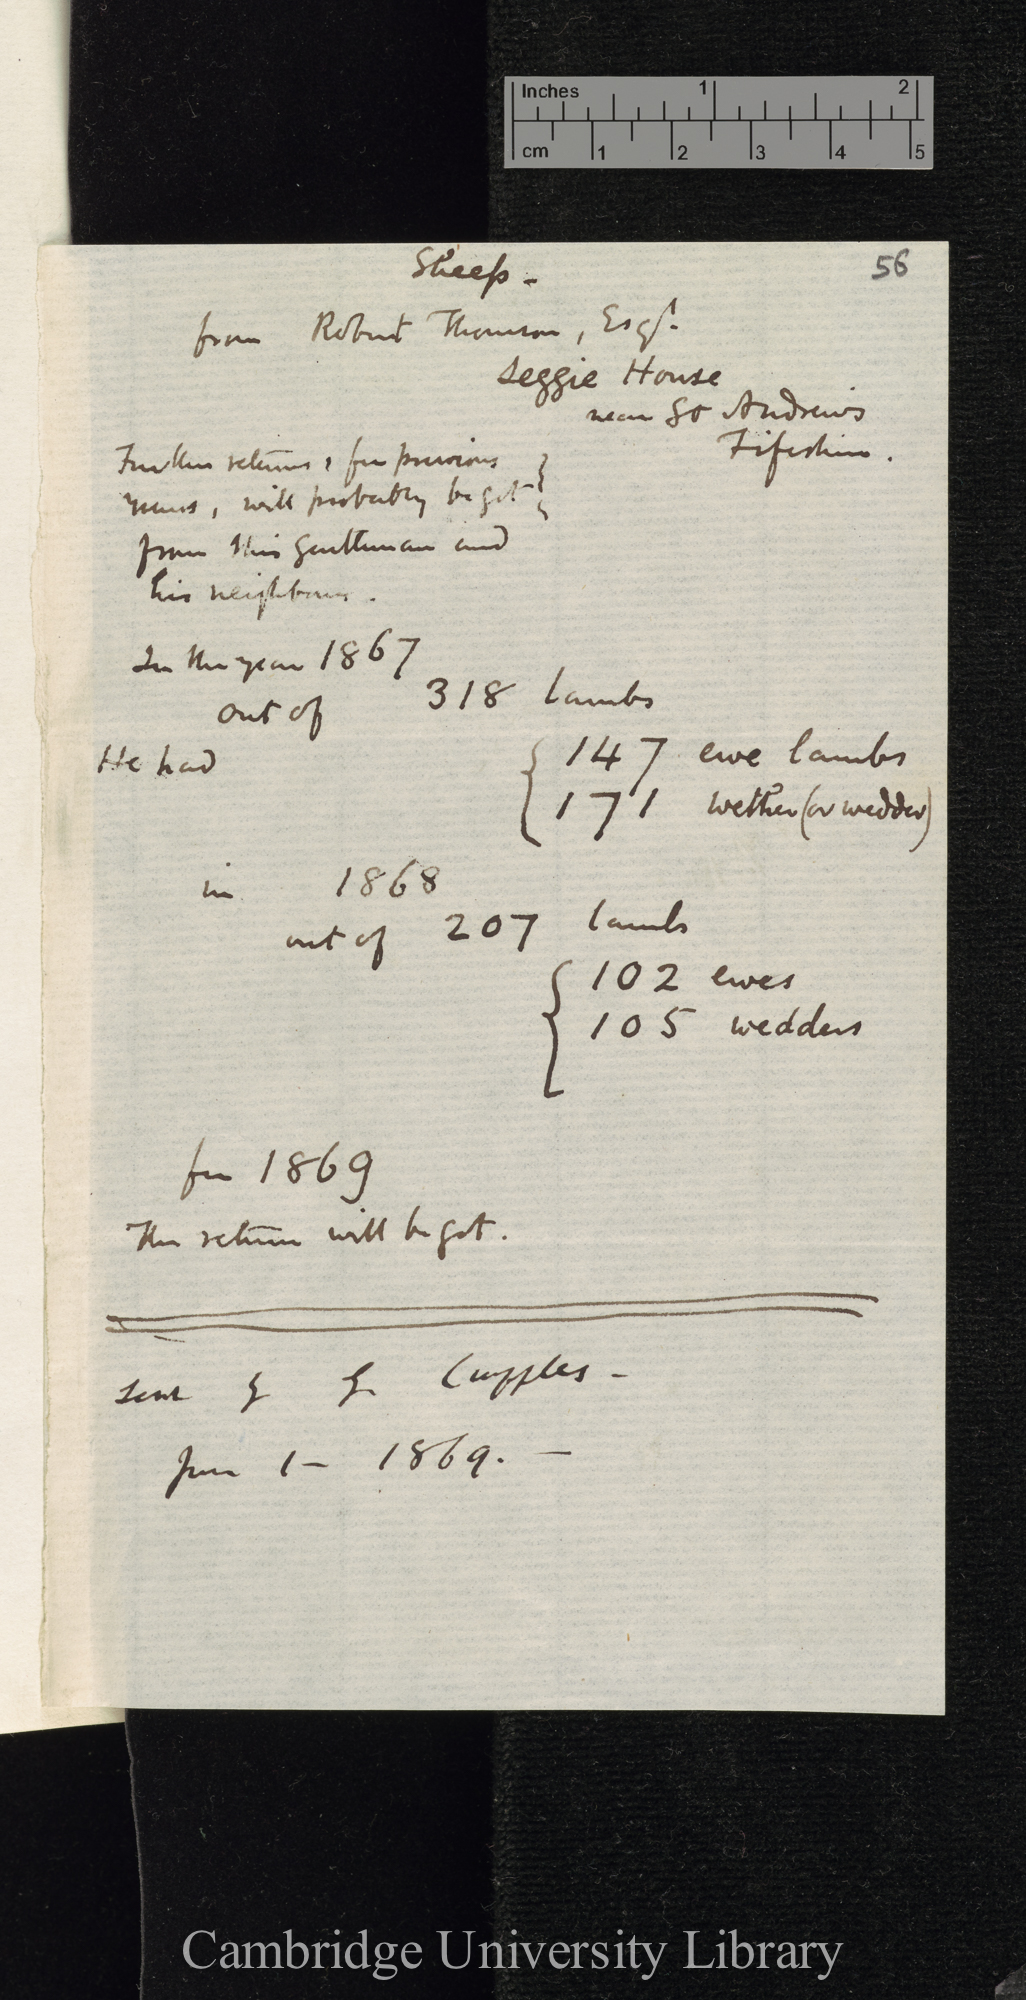 Inches 1 2
cm 1 2 3 4 5
56
Sheep -
from Robert Thomson, Esqr.
Seggie House
near St Andrews
Fifeshire.
Further returns, for previous
years, will probably be got
from this gentleman and
his neighbours.
In the year 1867
out of 318 lambs
He had { 147 ewe lambs
171 wether (or wedder)
in 1868
out of 207 lambs
{ 102 ewes
105 wedders
for 1869
The return will be got.
Sent by G. Cupples -
June 1 - 1869. -
Cambridge University Library